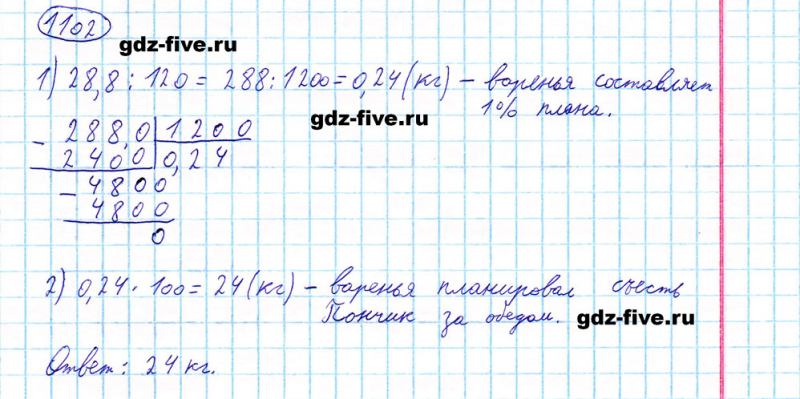 1102
gdz-five.ru
1) 28,8 : 120 = 288 : 1200 = 0,24 (кг) – варенья составляет
1% плана.
gdz-five.ru
- 288,0 | 1200
2400 | 0,24
- 4800
4800
0
2) 0,24 · 100 = 24 (кг) – варенья планировал съесть
Пончик за обедом.
gdz-five.ru
Ответ: 24 кг.